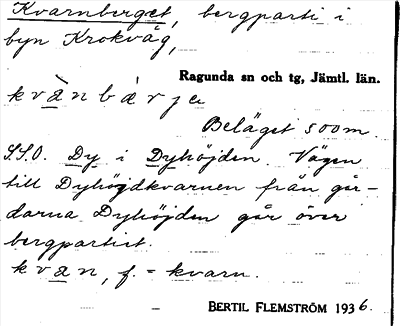 Kvarnberget, bergparti i
byn Krokvåg,
Ragunda sn och tg, Jämtl. län.
kvànbárje
Beläget 500m.
S.S.O. Dy i Dyhöjden. Vägen
till Dyhöjdkvarnen från går-
darna Dyhöjden går över
bergpartiet.
kvan, f. = kvarn.
BERTIL FLEMSTRÖM 1936.